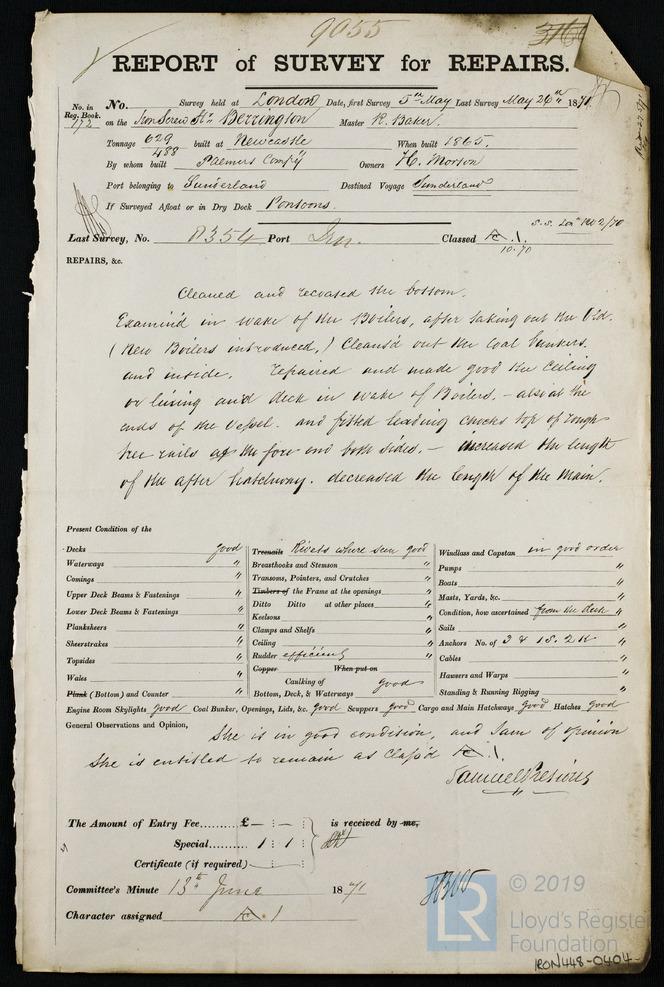 9055
REPORT of SURVEY for REPAIRS.
No. in Reg. Book. 172
No. Survey held at London Date, first Survey 5th May Last Survey May 26th 1871
on the Iron Screw Str Berrington Master R. Baker.
Tonnage 629 / 488 built at Newcastle When built 1865.
By whom built Palmers Compy Owners H. Morton
Port belonging to Sunderland Destined Voyage Sunderland
If Surveyed Afloat or in Dry Dock Pontoons.
S.S. Lon 2/70
Last Survey, No. 8354 Port Lon. Classed A.1.
10.70
REPAIRS, &c.
Cleaned and recoated the bottom.
Examin'd in wake of the Boilers, after taking out the Old.
(New Boilers introduced,) Cleans'd out the Coal bunkers.
and inside. repaired and made good the Ceiling
or lining and deck in wake of Boilers. - also at the
ends of the Vessel. and fitted leading chocks top of rough
tree rails at the fore end both sides. - increased the length
of the after hatchway. decreased the length of the Main.
Present Condition of the
Decks good
Waterways "
Comings "
Upper Deck Beams & Fastenings "
Lower Deck Beams & Fastenings "
Planksheers "
Sheerstrakes "
Topsides "
Wales "
Plank (Bottom) and Counter "
Treenails Rivets where seen good
Breasthooks and Stemson "
Transoms, Pointers, and Crutches "
Timbers of the Frame at the openings "
Ditto Ditto at other places "
Keelsons "
Clamps and Shelfs "
Ceiling "
Rudder efficient "
Copper When put on
Caulking of
Bottom, Deck, & Waterways good
Windlass and Capstan in good order
Pumps "
Boats "
Masts, Yards, &c. "
Condition, how ascertained from the deck "
Sails "
Anchors No. of 3 & 1 S. 2 K "
Cables "
Hawsers and Warps "
Standing & Running Rigging "
Engine Room Skylights good Coal Bunker, Openings, Lids, &c. good Scuppers good Cargo and Main Hatchways good Hatches good
General Observations and Opinion,
She is in good condition, and I am of opinion
she is entitled to remain as Class'd A.1.
Samuel Pretious
The Amount of Entry Fee £ — : — : is received by me,
Special 1 : 1 :
Certificate (if required) — : :
Committee's Minute 13th June 1871
Character assigned A.1
LR
© 2019
Lloyd's Register
Foundation
IRON448-0404-